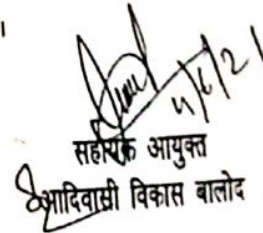 4/6/21
सहायक आयुक्त
आदिवासी विकास बालोद